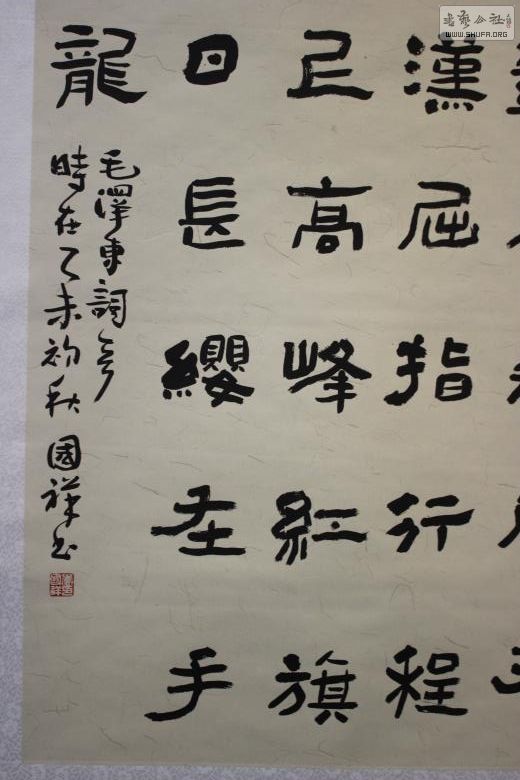 漢屈指行程
上高峰紅旗
日長纓在手
龍
毛澤東詞
時在乙未初秋 國祥书
書藝公社
WWW.SHUFA.ORG